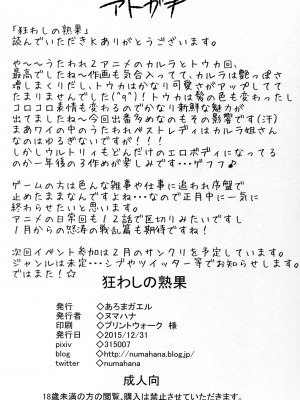 アトガキ
「狂わしの熟果」
読んでいただきKありがとうございます。
や〜〜うたわれ2アニメのカルラとトウカ回、
最高でしたね〜作画も気合入ってて、カルラは艶っぽさ
増しまくりだし、トウカはかなり可愛さがアップしてて
たまりませんでした(^q^)!トウカは髪の色も変わったし
コロコロ表情も変わるのでかなり新鮮な魅力が
出てましたね〜今回出番多めなのもその影響です(汗)
まあワイの中のうたわれベストレディはカルラ姉さん
なのはゆるぎないですが!!!
しかしウルトリィもどんだけのエロボディになってる
のか一年後の3作めが楽しみです…ゲフフ♪
ゲームの方は色んな雑事や仕事に追われ序盤で
止めたままなんですよね…なので正月中に一気に
終わらせたいと思います。
アニメの日常回も12話で区切りみたいですし
1月からの怒涛の戦乱篇も期待ですね!
次回イベント参加は2月のサンクリを予定しています。
ジャンルは未定…シブやツイッター等でお知らせします。
ではまた!☆
狂わしの熟果
発行 ◇あろまガエル
発行者 ◇ヌマハナ
印刷 ◇プリントウォーク 様
発行日 ◇2015/12/31
pixiv ◇315007
blog ◇http://numahana.blog.jp/
twitter ◇numahana
成人向
18歳未満の方の閲覧、購入は禁止させていただきます。